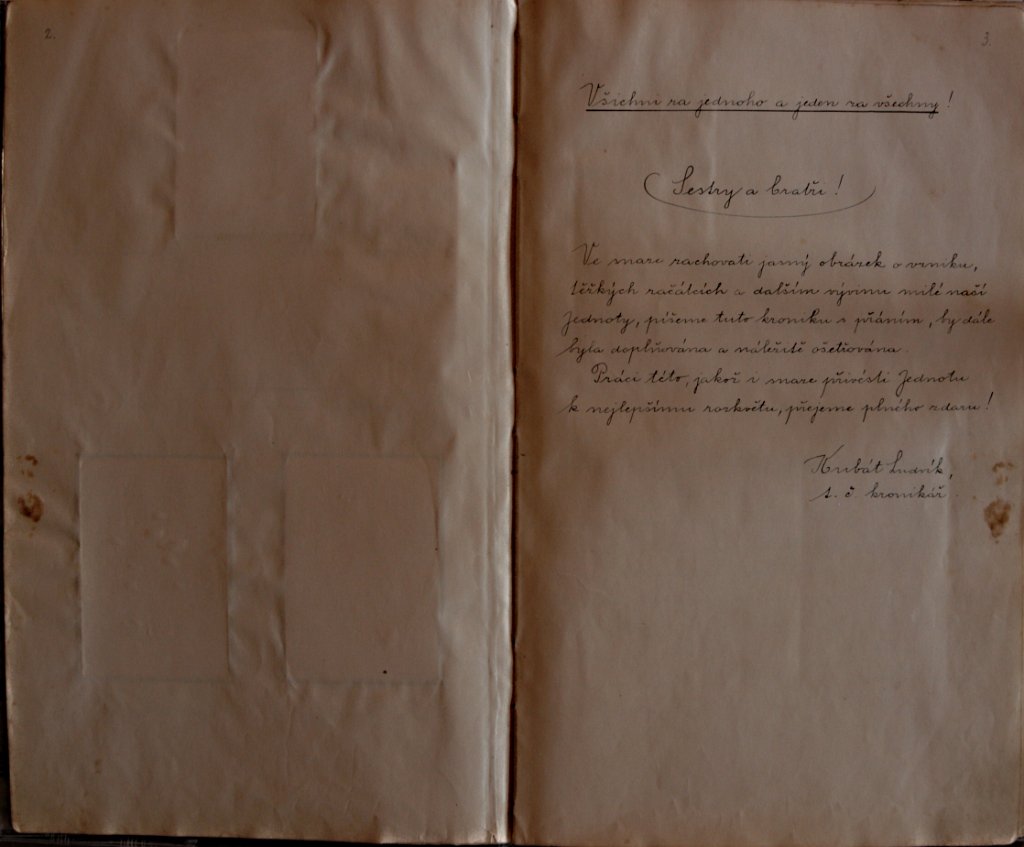 2.
3.
Všichni za jednoho a jeden za všechny!
Sestry a bratři!
Ve snaze zachovati jasný obrázek o vzniku,
těžkých začátcích a dalším vývinu milé naší
Jednoty, píšeme tuto kroniku s přáním, by dále
byla doplňována a náležitě ošetřována.
Práci této, jakož i snaze přivésti Jednotu
k nejlepšímu rozkvětu, přejeme plného zdaru!
Kubát Ludvík,
t. č. kronikář.